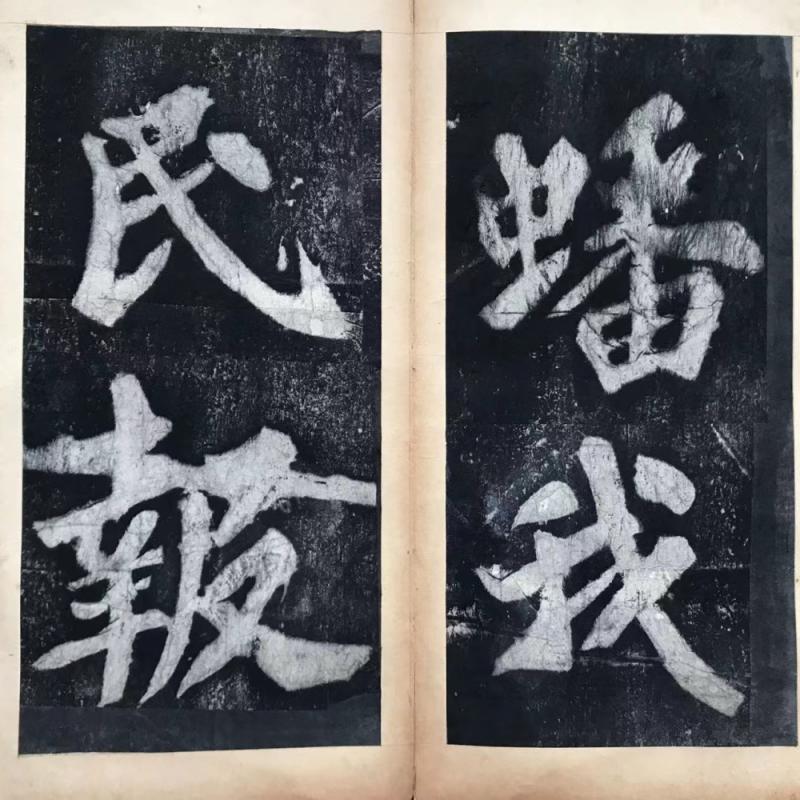 蟠我
民報